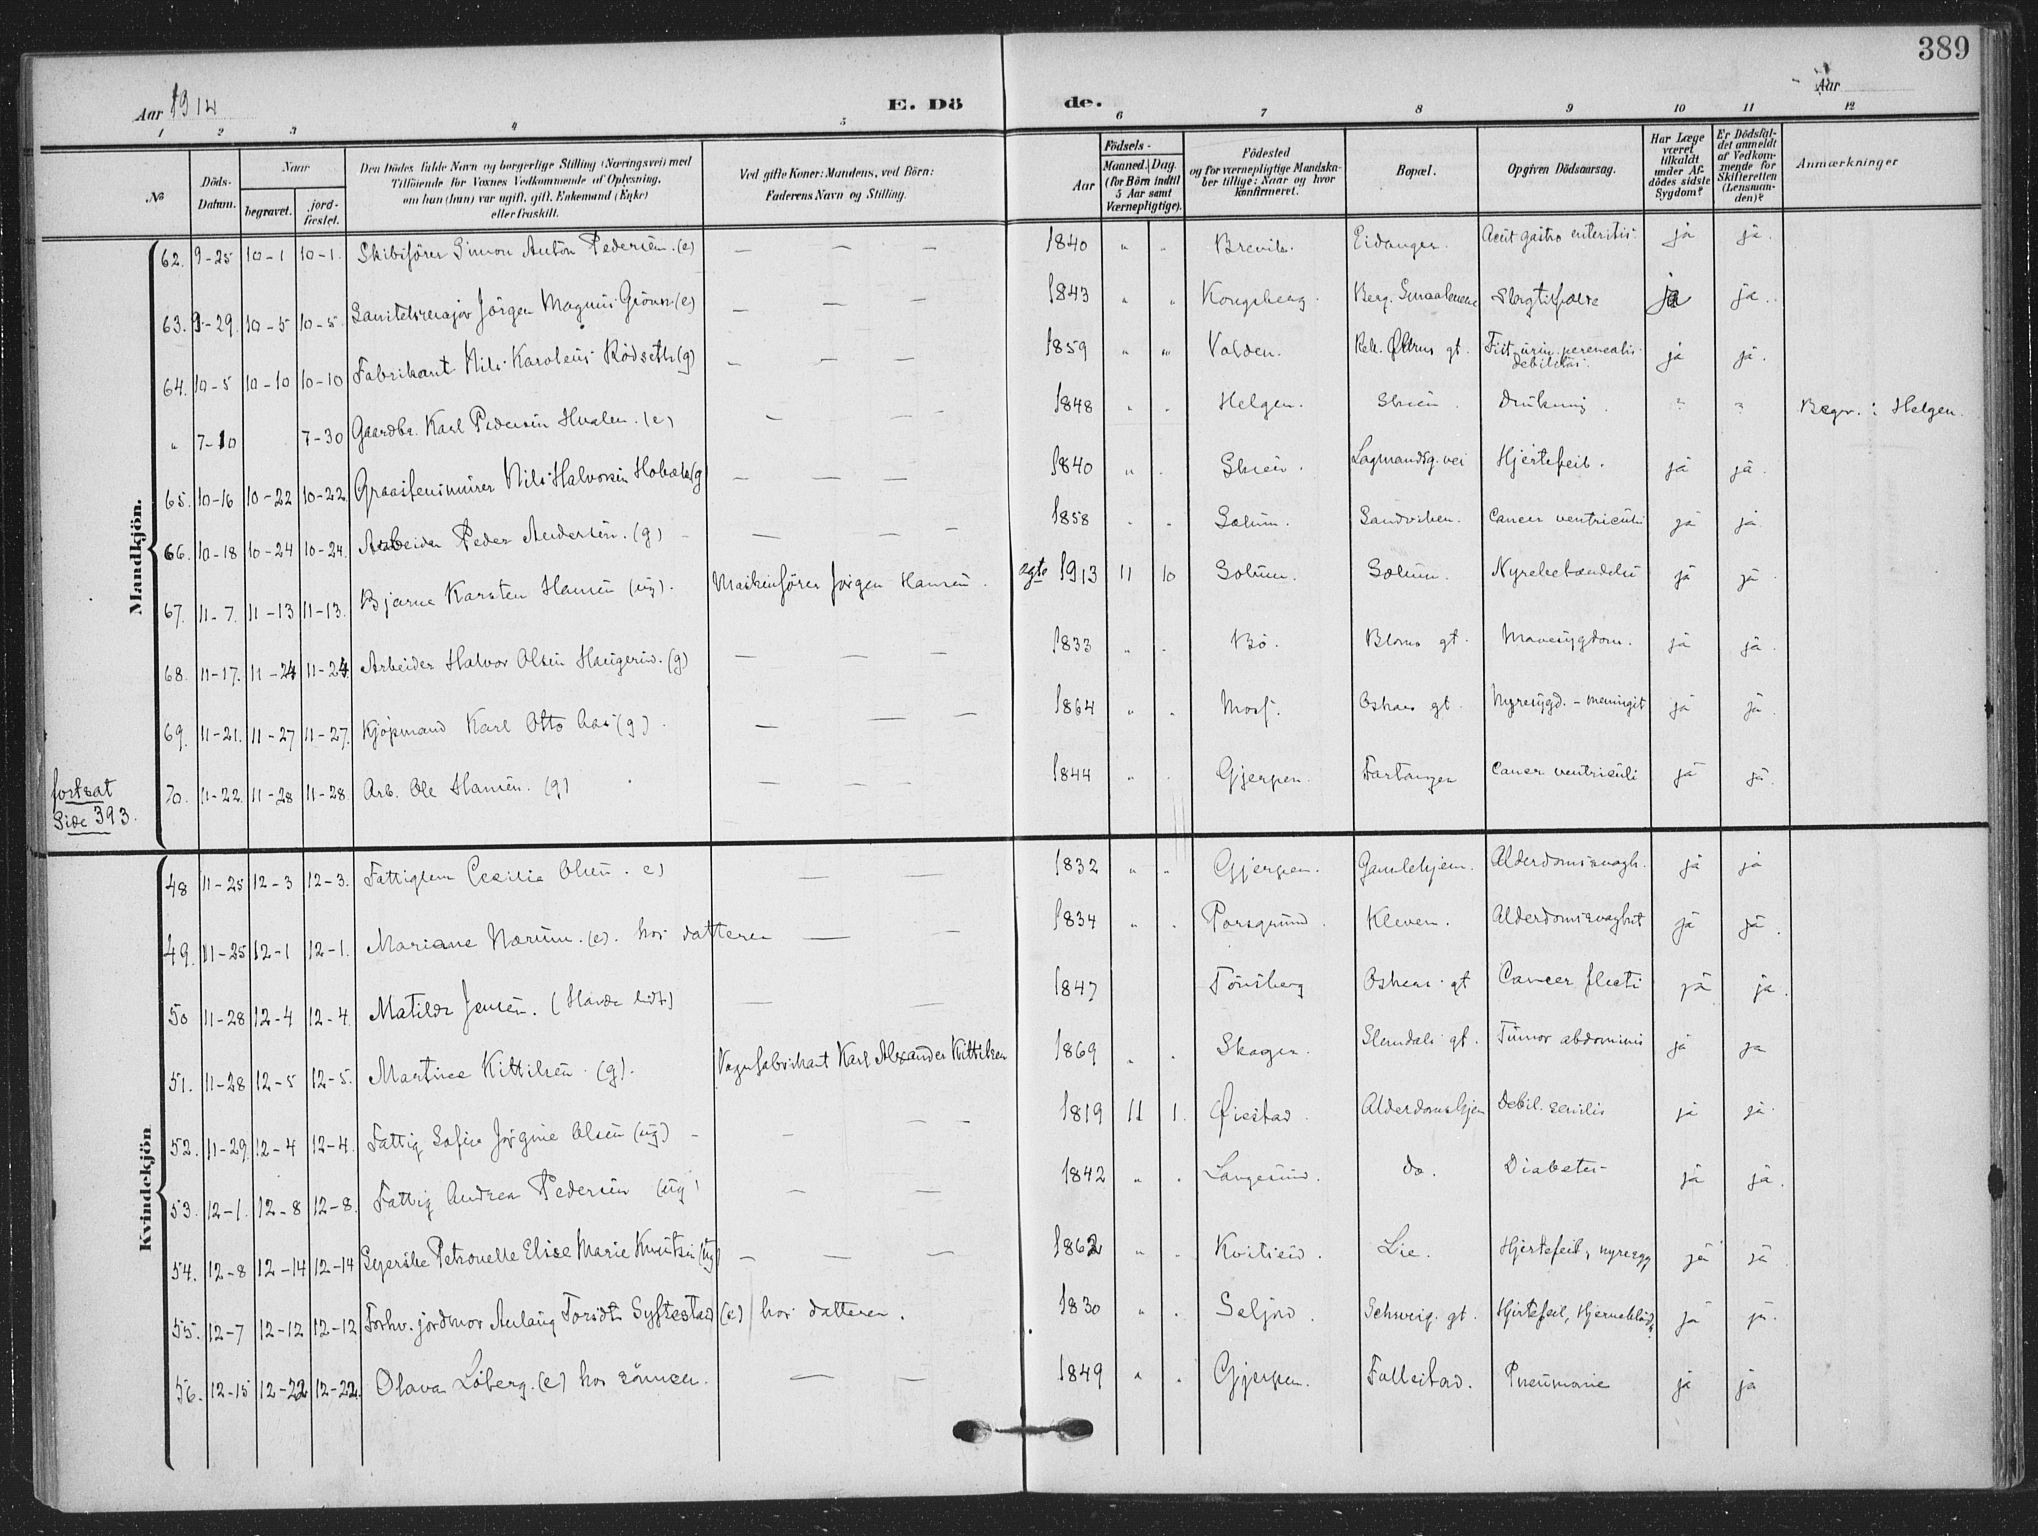 389
Aar 1914
E. Dö de.
Aar
1 2 3 4 5 6 7 8 9 10 11 12
No
Döds-Datum.
Naar
begravet.
jord-fæstet.
Den Dödes fulde Navn og borgerlige Stilling (Næringsvei) med Tilföiende for Voxnes Vedkommende af Oplysning, om han (hun) var ugift, gift, Enkemand (Enke) eller fraskilt.
Ved gifte Koner: Mandens, ved Börn: Faderens Navn og Stilling.
Födsels-
Aar
Maaned. Dag.
(for Börn indtil 5 Aar samt Værnepligtige).
Födested og for værnepligtige Mandskaber tillige: Naar og hvor konfirmeret.
Bopæl.
Opgiven Dödsaarsag.
Har Læge været tilkaldt under Afdödes sidste Sygdom?
Er Dödsfaldet anmeldt af Vedkommende for Skifteretten (Lensmanden)?
Anmærkninger
Mandkjön.
62. 9-25 10-1 10-1. Skibsfører Simon Anton Pedersen. (e) — — — 1840 " " Brevik. Eidanger. Acut gastro enteritis. ja ja.
63. 9-29. 10-5 10-5. Sanitetsmajor Jørgen Magnus (e) — — — 1843 " " Kongsberg. Berg. Smaalenene Slagtilfælde ja ja.
64. 10-5 10-10 10-10 Fabrikant Nils Karolius Rødseth (g) — — — 1859 " " Volden. gt. debilitas. ja ja.
" 7-10 7-30 Gaardbr. Karl Pedersen Hvalen. (e) — — — 1848 " " Helgen. Skien. Drukning. " " Begr. i Helgen.
65. 10-16 10-22 10-22 Graastensmurer Nils Halvorsen (g) — — — 1840 " " Skien. Lagmandsg. vei Hjertefeil. ja ja.
66. 10-18 10-24 10-24. Arbeider Peder Andersen. (g) — — — 1858 " " Solum. Sandviken. Cancer ventriculi ja ja
67. 11-7. 11-13 11-13. Bjarne Karsten Hansen (ug). Maskinfører Jørgen Hansen. ægte 1913 11 10 Solum. Solum. ja ja.
68. 11-17. 11-24 11-24. Arbeider Halvor Olsen Haugerud. (g) — — — 1833 " " Bø. Bloms gt. Mavesygdom. ja ja.
69. 11-21. 11-27 11-27. Kjøpmand Karl Otto Aas (g). — — — 1864 " " Moss. Oskars gt. Nyresygd. - meningit ja ja
70. 11-22. 11-28 11-28. Arb. Ole Hansen. (g) — — — 1844 " " Gjerpen. Fartangen Cancer ventriculi ja ja.
fortsat
Side 393.
Kvindekjön
48 11-25 12-3 12-3. Fattiglem Cecilie Olsen. e) — — — 1832 " " Gjerpen. Gamlehjem. Alderdomssvagh. ja ja
49. 11-25 12-1 12-1. Mariane Nærum. (e). hos datteren — — 1834 " " Porsgrund. Kleven. Alderdomssvaghet ja ja.
50 11-28 12-4 12-4. Matilde Jensen. — — 1847 Tønsberg Oskars gt Cancer ja ja.
51. 11-28 12-5 12-5. Martine Kittilsen. (g). Vognfabrikant Karl Alexander Kittilsen 1869 " " Skogen. gt. Tumor abdominis ja ja
52. 11-29. 12-4 12-4. Fattig Sofie Jørgine Olsen (ug) — — — 1819 11 1. Øiestad. Alderdomshjem Debil. senilis ja ja.
53. 12-1. 12-8 12-8. Fattig Andrea Pedersen (ug) — — 1842 " " Langesund do. Diabetes ja ja.
54. 12-8 12-14 12-14 Syerske Petronelle Elise Marie Knutsen (ug) — — — 1862 " " Kvitseid. Lie. Hjertefeil, nyresyg ja ja
55. 12-7 12-12 12-12 Forhv. jordmor Aulaug Torsdt. Syftestad (e) hos datteren. 1830 " " Seljord. Schweig. gt. Hjertefeil, Hjerneblødn. ja ja.
56. 12-15 12-22 12-22. Olava Løberg. (e) hos sønnen. — — 1849 " " Gjerpen. Follestad. Pneumonie ja ja